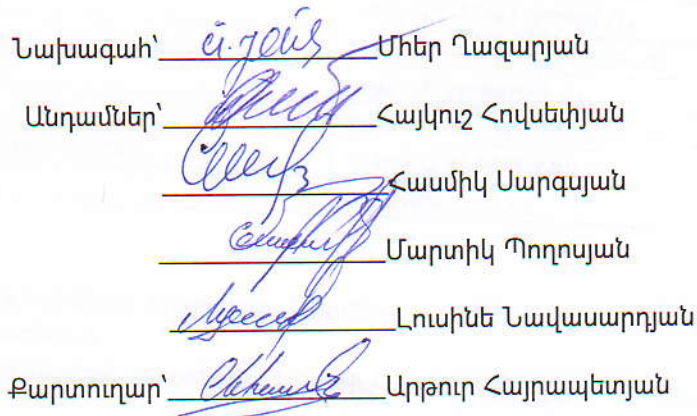 Նախագահ՝ Մհեր Ղազարյան
Անդամներ՝ Հայկուշ Հովսեփյան
Հասմիկ Սարգսյան
Մարտիկ Պողոսյան
Լուսինե Նավասարդյան
Քարտուղար՝ Արթուր Հայրապետյան